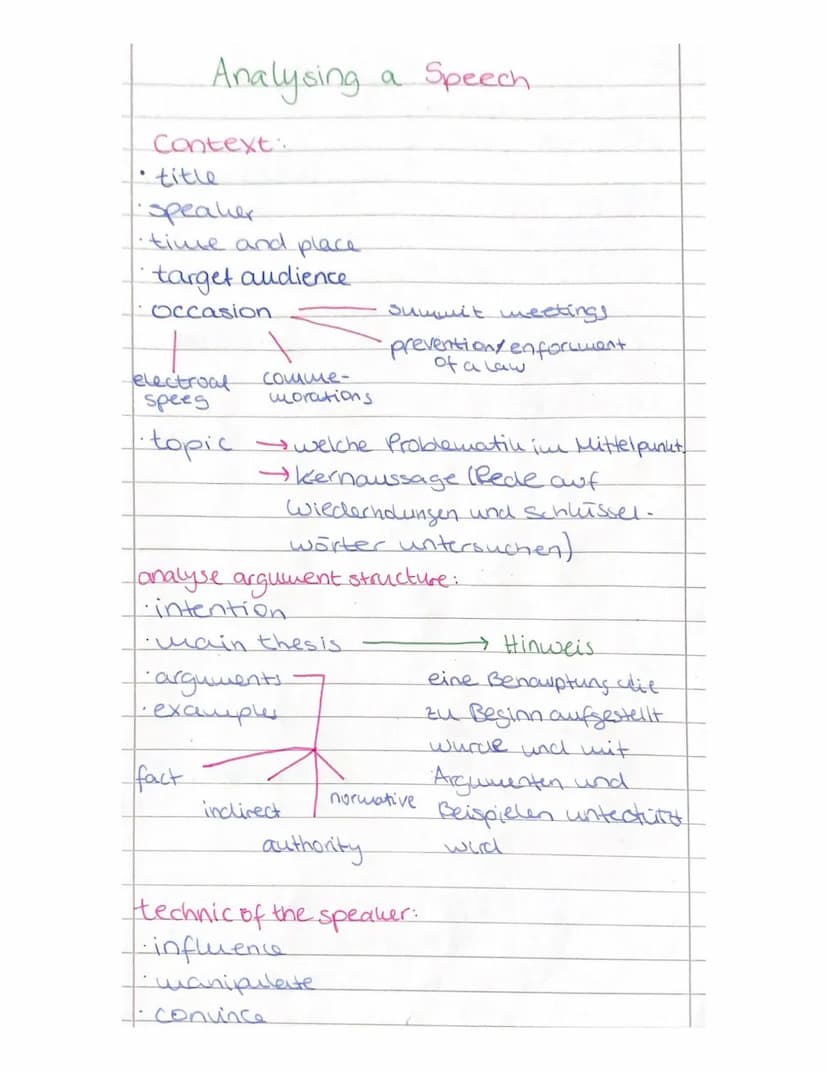 Analysing a Speech
Context:
· title
· speaker
· time and place
· target audience
· occasion — summit meetings
prevention/enforcment
of a law
electroal comme-
speeg morations
· topic → welche Problematik im Mittelpunkt
→ Kernaussage (Rede auf
Wiederholungen und Schlüssel-
wörter untersuchen)
analyse argument structure:
· intention
· main thesis → Hinweis
· arguments eine Behauptung die
· examples zu Beginn aufgestellt
wurde und mit
fact Argumenten und
indirect normative Beispielen untestützt
authority wird
technic of the speaker:
· influence
· manipulate
· convince